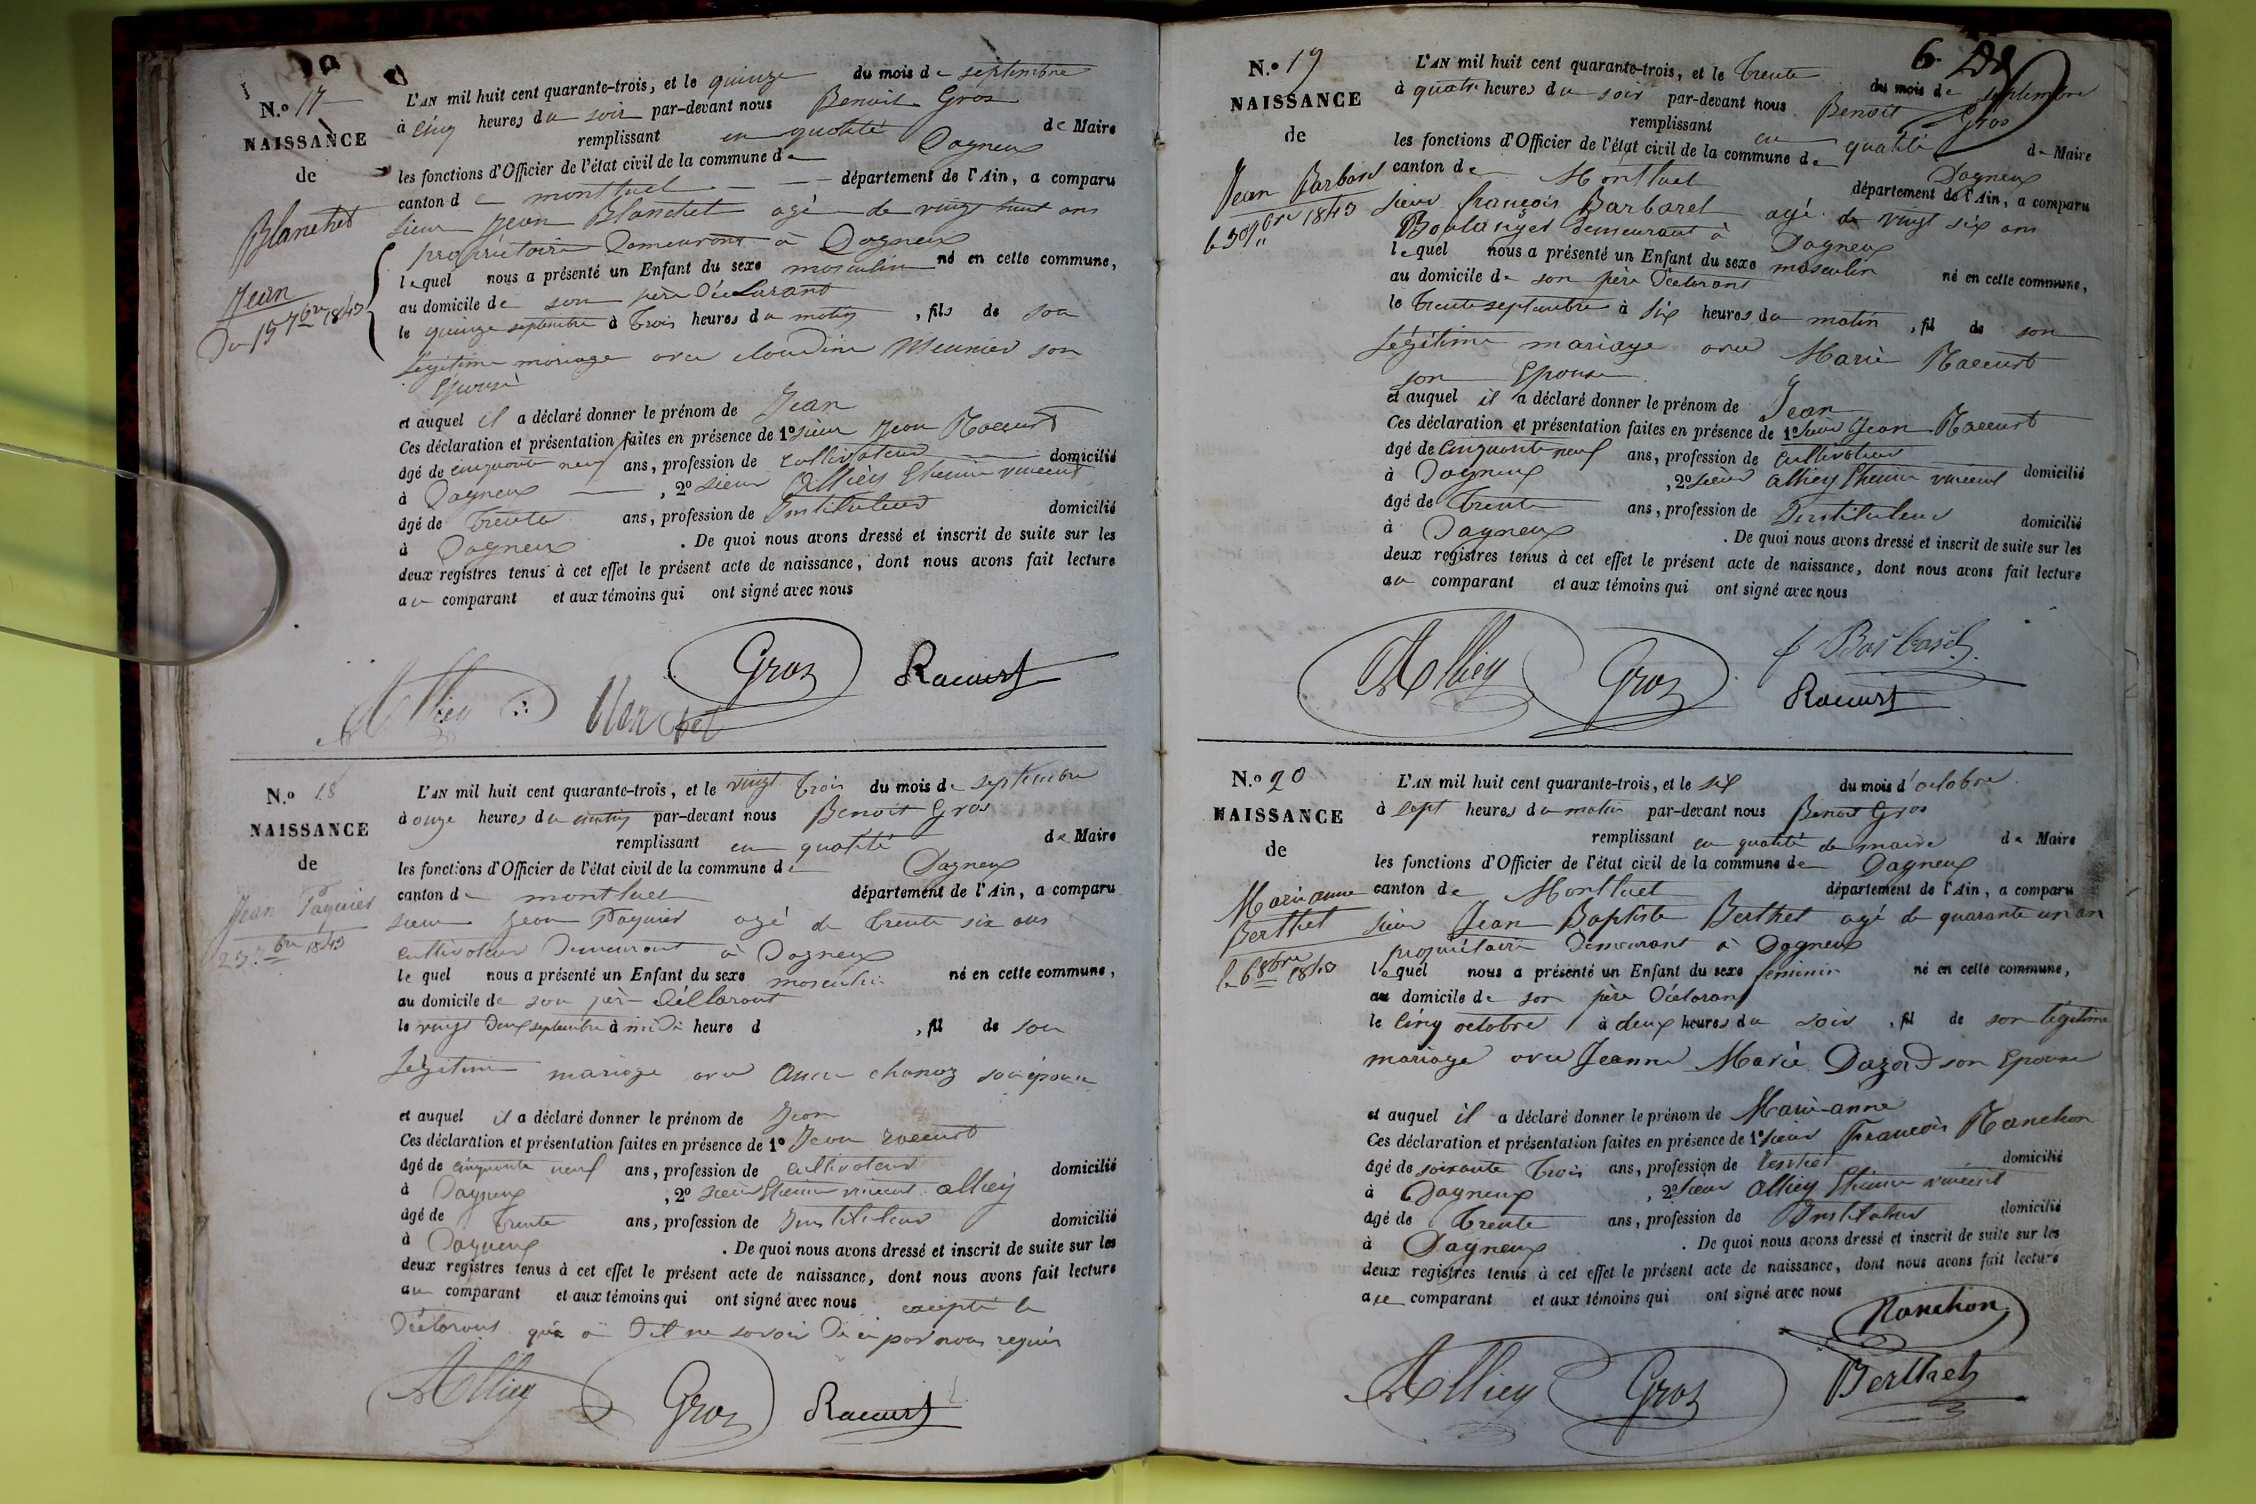 N.o 17
NAISSANCE
de
Blanchet
Jean
Du 15 7bre 1843
L'AN mil huit cent quarante-trois, et le quinze du mois de septembre
à cinq heures du soir par-devant nous Benoit Gros
remplissant en qualité de Maire
les fonctions d'Officier de l'état civil de la commune de Dagneux
canton de montluel département de l'Ain, a comparu
sieur Jean Blanchet agé de vingt huit ans
propriétaire Demeurant à Dagneux
lequel nous a présenté un Enfant du sexe masculin né en cette commune,
au domicile de son père Déclarant
le quinze septembre à trois heures du matin, fils de son
légitime mariage avec claudine Meunier son
Epouse
et auquel il a déclaré donner le prénom de Jean
Ces déclaration et présentation faites en présence de 1o sieur Jean Raccurt
âgé de cinquante neuf ans, profession de cultivateur domicilié
à Dagneux, 2o sieur Alliey Etienne vincent
âgé de trente ans, profession de Instituteur domicilié
à Dagneux. De quoi nous avons dressé et inscrit de suite sur les
deux registres tenus à cet effet le présent acte de naissance, dont nous avons fait lecture
au comparant et aux témoins qui ont signé avec nous
Gros Racurt
Alliey Blanchet
N.o 18
NAISSANCE
de
Jean Paquier
23 7bre 1843
L'AN mil huit cent quarante-trois, et le vingt trois du mois de septembre
à onze heures du matin par-devant nous Benoit Gros
remplissant en qualité de Maire
les fonctions d'Officier de l'état civil de la commune de Dagneux
canton de montluel département de l'Ain, a comparu
sieur Jean Paquier agé de trente six ans
cultivateur Demeurant à Dagneux
le quel nous a présenté un Enfant du sexe masculin né en cette commune,
au domicile de son père Déclarant
le vingt Deux septembre à midi heure d, fil de son
légitime mariage avec anne chanoz son épouse
et auquel il a déclaré donner le prénom de Jean
Ces déclaration et présentation faites en présence de 1o Jean raccurt
âgé de cinquante neuf ans, profession de cultivateur domicilié
à Dagneux, 2o sieur Etienne vincent alliey
âgé de trente ans, profession de Instituteur domicilié
à Dagneux. De quoi nous avons dressé et inscrit de suite sur les
deux registres tenus à cet effet le présent acte de naissance, dont nous avons fait lecture
au comparant et aux témoins qui ont signé avec nous excepté le
Déclarant qui a Dit ne savoir De ce par nous requis
Alliey Gros Racurt
6
N.o 19
NAISSANCE
de
Jean Barbaret
le 30 7bre 1843
L'AN mil huit cent quarante-trois, et le trente du mois de septembre
à quatre heures du soir par-devant nous Benoit Gros
remplissant en qualité de Maire
les fonctions d'Officier de l'état civil de la commune de Dagneux
canton de Montluel département de l'Ain, a comparu
sieur françois Barbaret agé de vingt six ans
Boulanger demeurant à Dagneux
lequel nous a présenté un Enfant du sexe masculin né en cette commune,
au domicile de son père Déclarant
le trente septembre à six heures du matin, fil de son
légitime mariage avec Marie Raccurt
son Epouse
et auquel il a déclaré donner le prénom de Jean
Ces déclaration et présentation faites en présence de 1o sieur Jean Raccurt
âgé de cinquante neuf ans, profession de cultivateur domicilié
à Dagneux, 2o sieur alliey Etienne vincent
âgé de trente ans, profession de Instituteur domicilié
à Dagneux. De quoi nous avons dressé et inscrit de suite sur les
deux registres tenus à cet effet le présent acte de naissance, dont nous avons fait lecture
au comparant et aux témoins qui ont signé avec nous
f Barbaret
Alliey Gros Racurt
N.o 20
NAISSANCE
de
Marie anne
Berthet
le 6 8bre 1843
L'AN mil huit cent quarante-trois, et le six du mois d'octobre
à sept heures du matin par-devant nous Benoit Gros
remplissant en qualité de maire de Maire
les fonctions d'Officier de l'état civil de la commune de Dagneux
canton de Montluel département de l'Ain, a comparu
sieur Jean Baptiste Berthet agé de quarante un an
propriétaire Demeurant à Dagneux
lequel nous a présenté un Enfant du sexe feminin né en cette commune,
au domicile de son père Déclarant
le cinq octobre à deux heures du soir, fil de son légitime
mariage avec Jeanne Marie Dazord son Epouse
et auquel il a déclaré donner le prénom de Marie-anne
Ces déclaration et présentation faites en présence de 1o sieur François Ranchon
âgé de soixante trois ans, profession de rentier domicilié
à Dagneux, 2o sieur alliey Etienne vincent
âgé de trente ans, profession de Instituteur domicilié
à Dagneux. De quoi nous avons dressé et inscrit de suite sur les
deux registres tenus à cet effet le présent acte de naissance, dont nous avons fait lecture
au comparant et aux témoins qui ont signé avec nous
Ranchon
Alliey Gros Berthet